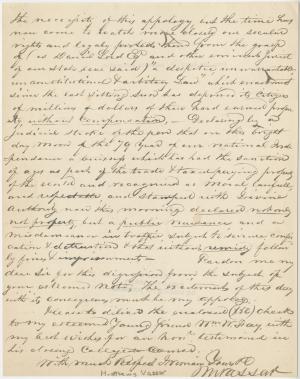 the necessity of this appology but the time has
now come to watch more closed our secular
rights and legaly protect them from the grasp
of as David Lord Esq and other eminent Jurist
of our State, has said "a despotic unwarrantable
unconstitutional & arbitary Law" which has almost
since the last setting Sun has deposed its Citizens
of millions of dollars of their hard earned property
& without Compensation, — Declaring by a
Judicial Stroke of the pen that on this bright
day Morn of the 79 Year of our national Inde
pendance a buisness which has had the sanction
of ages as part of the trade & tax paying property
of the world and recognised as Moral lawfull,
and expedient and Stamped with Divine
Authority is this morning declared not only
not property, but a public nuisance and a
misdemeanor in traffic subject to seizure confis
cation & destruction & that without remedy follow
by fines & imprisonment — Pardon me my
dear Sir for this digression from the subject of
your esteemed Note, the excitements of the day
with its consequences must be my appology.
Please to deliver the enclosed ($50) checks
to my esteemed Young friend Wm H. Day with
my best wishes for an "Hon" testament in
his closing Collegiate Course.
With much respect
M Vassar